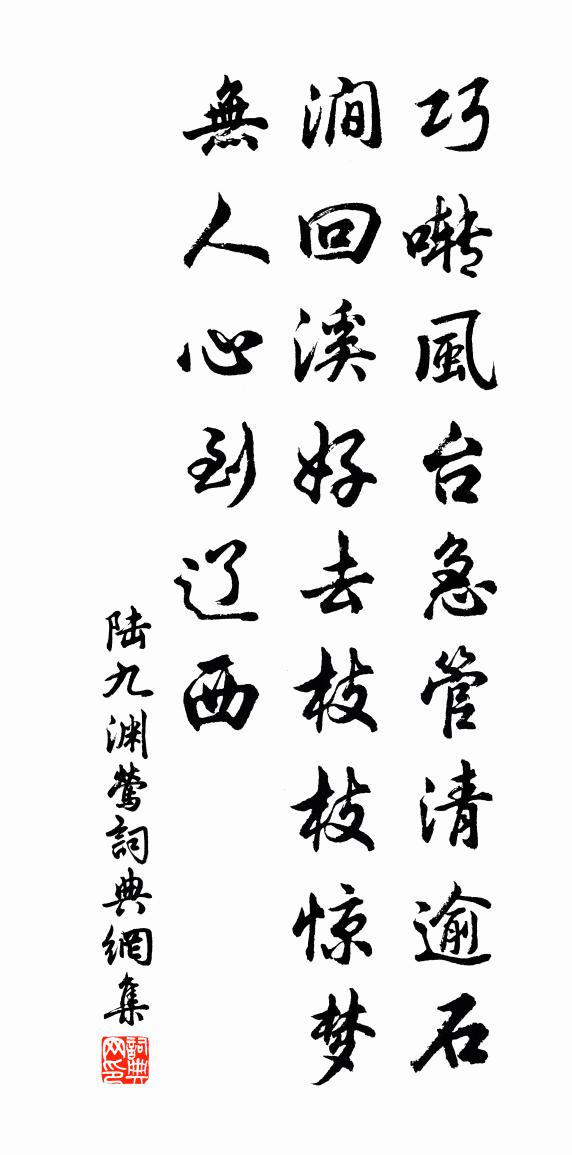 巧啭風台急管清逾石
澗回溪好去枝枝惊梦
無人心到辽西
陆九渊鶯詞典網集
詞典网印